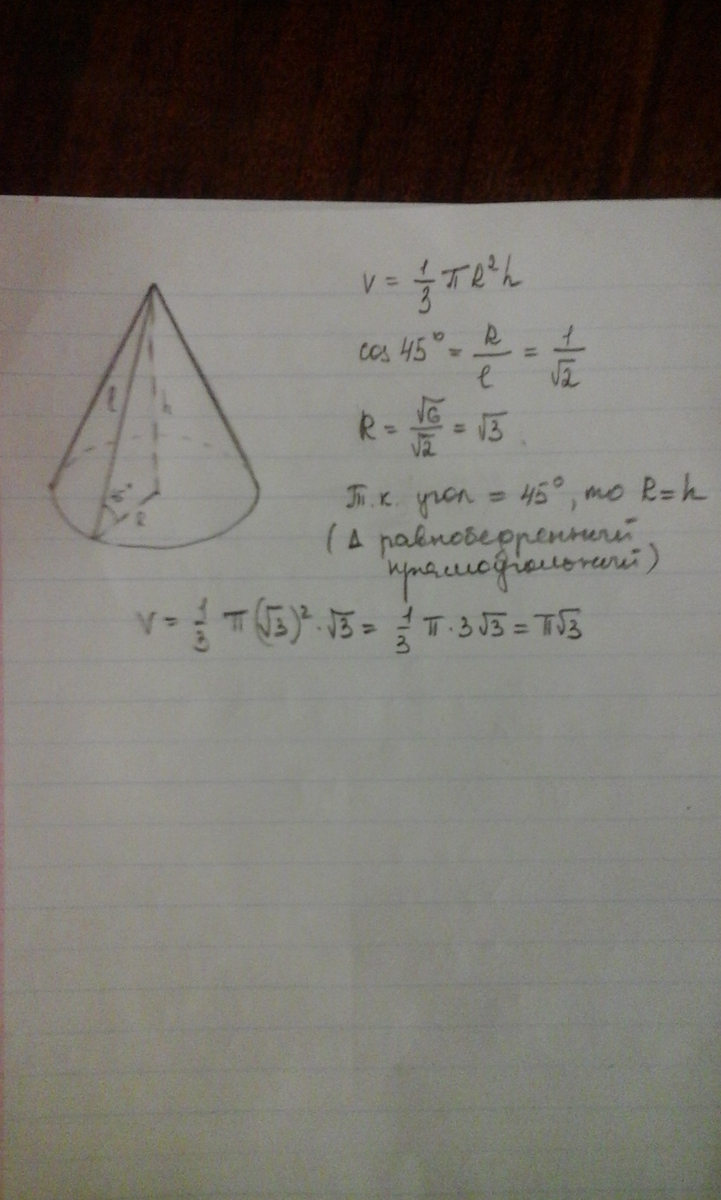 V = 1/3 π R²h
cos 45° = R/l = 1/√2
R = √6/√2 = √3
l
h
45°
R
Т.к. угол = 45°, то R=h
(Δ равнобедренный
прямоугольный)
V = 1/3 π(√3)²·√3 = 1/3 π·3√3 = π√3